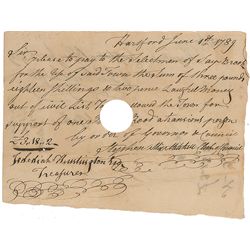 Hartford June 1st 1789
Sir
please to pay to the Selectmen of Saybrook
for the use of said Town the Sum of three pounds
eighteen shillings & two pence Lawful Money
out of civil List allowed them for
support of one a transient person
by order of Governor & Council
£3.18..2
Jedediah Huntington Esq
Treasurer